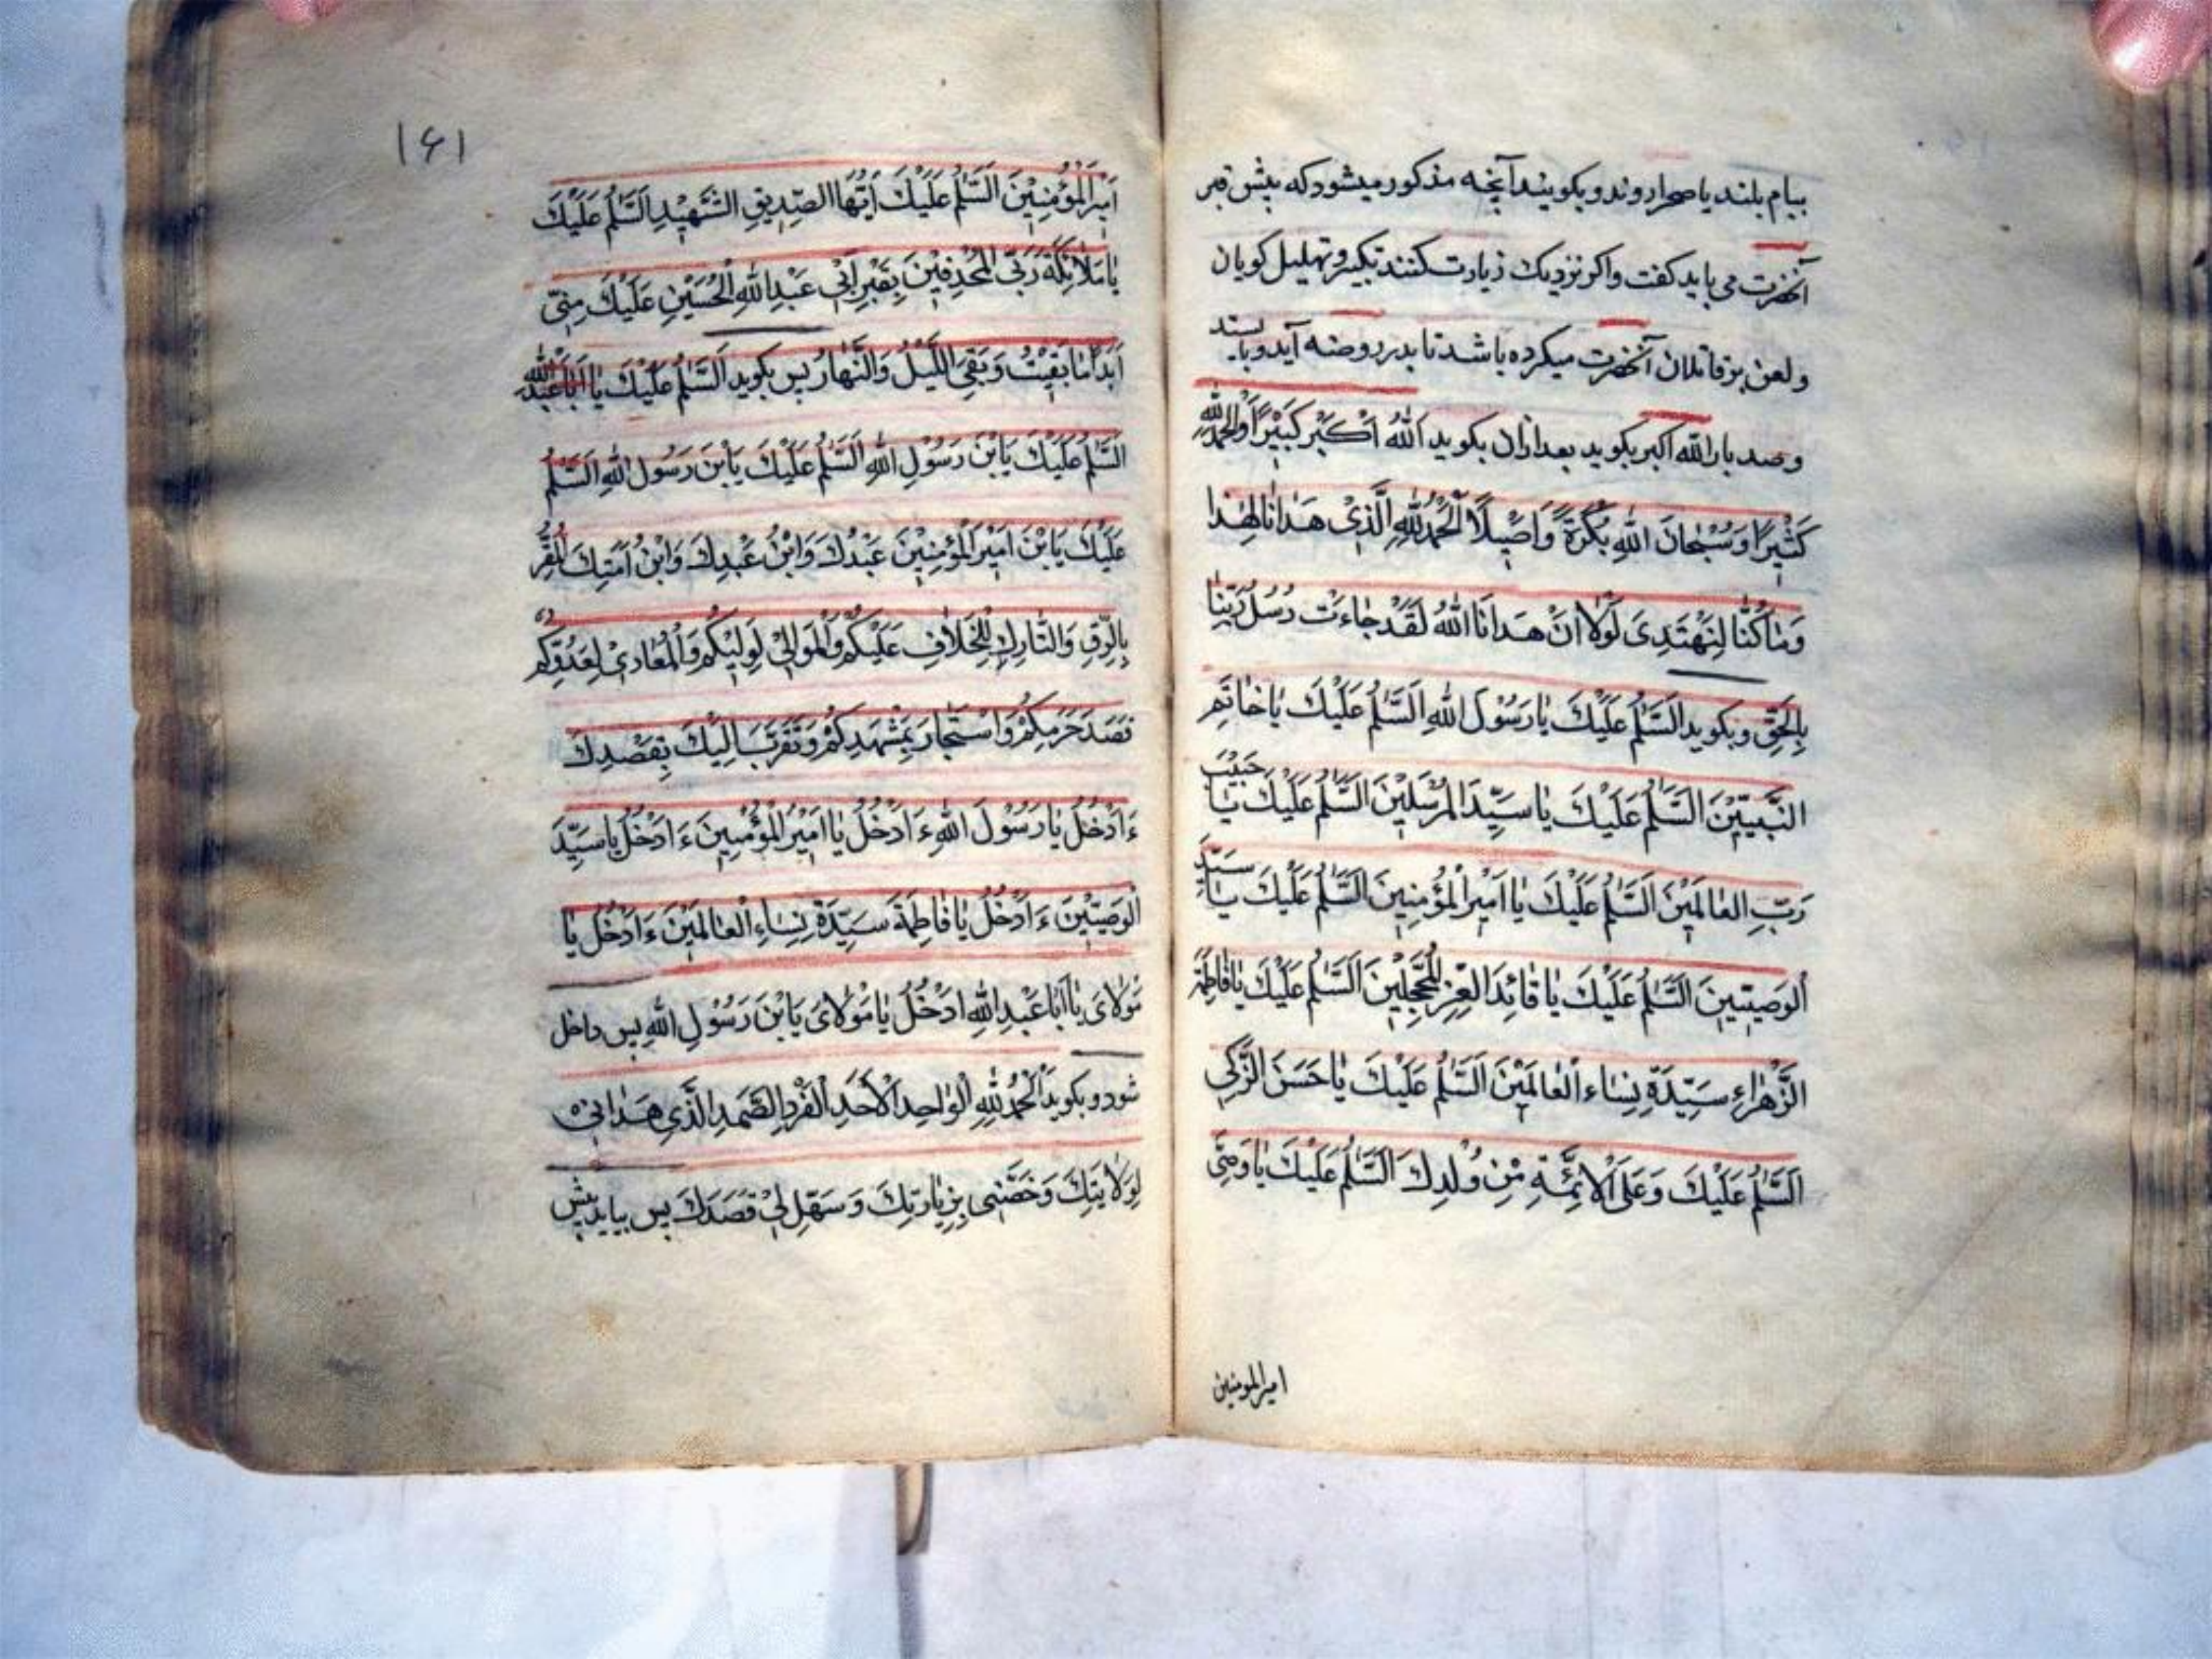 ببام بلند یا صحرا روند و بکویند آنچه مذکور میشود که پیش قبر
آنحضرت می باید کفت واکر نزدیك زیارت کنند تکبیر و تهلیل کویان
ولعن بر قاتلان آنحضرت میکرده باشد تا بدر روضه آید و بایستد
وصد بار الله اکبر بکوید بعد ازان بکوید اَللهُ اَکْبَرُ کَبِیْرًا وَالْحَمْدُ لِلّٰهِ
کَثِیْرًا وَسُبْحَانَ اللهِ بُکْرَةً وَاَصِیْلًا اَلْحَمْدُ لِلّٰهِ الَّذِیْ هَدَانَا لِهٰذَا
وَمَا کُنَّا لِنَهْتَدِیَ لَوْلَا اَنْ هَدَانَا اللهُ لَقَدْ جَاءَتْ رُسُلُ رَبِّنَا
بِالْحَقِّ وبکوید اَلسَّلٰمُ عَلَیْكَ یَا رَسُوْلَ اللهِ اَلسَّلٰمُ عَلَیْكَ یَا خَاتَمَ
النَّبِیِّیْنَ اَلسَّلٰمُ عَلَیْكَ یَا سَیِّدَ الْمُرْسَلِیْنَ اَلسَّلٰمُ عَلَیْكَ یَا حَبِیْبَ
رَبِّ الْعَالَمِیْنَ اَلسَّلٰمُ عَلَیْكَ یَا اَمِیْرَ الْمُؤْمِنِیْنَ اَلسَّلٰمُ عَلَیْكَ یَا سَیِّدَ
الْوَصِیِّیْنَ اَلسَّلٰمُ عَلَیْكَ یَا قَائِدَ الْغُرِّ الْمُحَجَّلِیْنَ اَلسَّلٰمُ عَلَیْكَ یَا فَاطِمَةَ
الزَّهْرَاءِ سَیِّدَةِ نِسَاءِ الْعَالَمِیْنَ اَلسَّلٰمُ عَلَیْكَ یَا حَسَنَ الزَّکِی
اَلسَّلٰمُ عَلَیْكَ وَعَلَی الْاَئِمَّةِ مِنْ وُلْدِكَ اَلسَّلٰمُ عَلَیْكَ یَا وَصِیَّ
امیرالمومنین
۱۶۱
اَمِیْرِ الْمُؤْمِنِیْنَ اَلسَّلٰمُ عَلَیْكَ اَیُّهَا الصِّدِّیقِ الشَّهِیْدِ اَلسَّلٰمُ عَلَیْكَ
یَا مَلَائِکَةَ رَبِّی الْمُحْدِقِیْنَ بِقَبْرِ اَبِیْ عَبْدِ اللهِ الْحُسَیْنِ عَلَیْكَ مِنِّی
اَبَدًا مَا بَقِیْتُ وَبَقِیَ اللَّیْلُ وَالنَّهَارُ پس بکوید اَلسَّلٰمُ عَلَیْكَ یَا اَبَا عَبْدِ اللهِ
اَلسَّلٰمُ عَلَیْكَ یَابْنَ رَسُوْلِ اللهِ اَلسَّلٰمُ عَلَیْكَ یَابْنَ رَسُوْلِ اللهِ اَلسَّلٰمُ
عَلَیْكَ یَابْنَ اَمِیْرِ الْمُؤْمِنِیْنَ عَبْدُكَ وَابْنُ عَبْدِكَ وَابْنُ اَمَتِكَ الْمُقِرُّ
بِالرِّقِ وَالتَّارِكِ لِلْخِلَافِ عَلَیْکُمْ وَالْمُوَالِیْ لِوَلِیِّکُمْ وَالْمُعَادِیْ لِعَدُوِّکُمْ
قَصَدَ حَرَمَکُمْ وَاسْتَجَارَ بِمَشْهَدِکُمْ وَتَقَرَّبَ اِلَیْكَ بِقَصْدِكَ
ءَاَدْخُلُ یَا رَسُوْلَ اللهِ ءَاَدْخُلُ یَا اَمِیْرَ الْمُؤْمِنِیْنَ ءَاَدْخُلُ یَا سَیِّدَ
الْوَصِیِّیْنَ ءَاَدْخُلُ یَا فَاطِمَةَ سَیِّدَةِ نِسَاءِ الْعَالَمِیْنَ ءَاَدْخُلُ یَا
مَوْلَایَ یَا اَبَا عَبْدِ اللهِ اَدْخُلُ یَا مَوْلَایَ یَابْنَ رَسُوْلِ اللهِ پس داخل
شود وبکوید اَلْحَمْدُ لِلّٰهِ الْوَاحِدِ الْاَحَدِ الْفَرْدِ الصَّمَدِ الَّذِی هَدَانِیْ
لِوَلَایَتِكَ وَخَصَّنِی بِزِیَارَتِكَ وَسَهَّلَ لِیْ قَصْدَكَ پس بیاید پیش